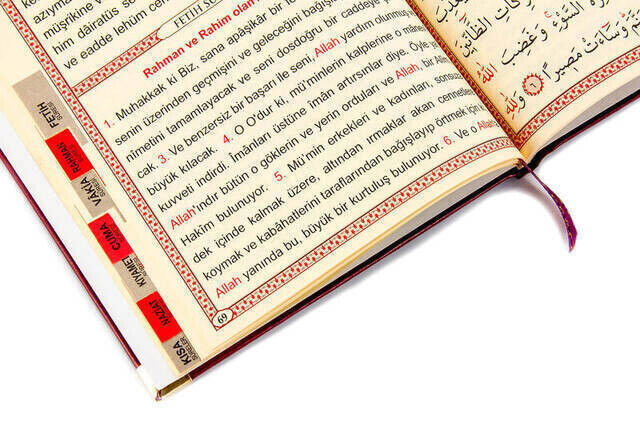 him dâiratüs
ve eadde lehüm cehen
FETİH SÛ
Rahman ve Rahim olan
1. Muhakkak ki Biz, sana apâşikâr bir
senin üzerinden geçmişini ve geleceğini bağışla
nimetini tamamlayacak ve seni dosdoğru bir caddeye
cak. 3. Ve benzersiz bir başarı ile seni, Allah yardım olunmuş
büyük kılacak. 4. O O'dur ki, mü'minlerin kalplerine o mâne
kuvveti indirdi. Îmânları üstüne îmân artırsınlar diye. Öyle
Allah'indir bütün o göklerin ve yerin orduları ve Allah, bir Alîm
Hakîm bulunuyor. 5. Mü'min erkekleri ve kadınları, sonsuz
dek içinde kalmak üzere, altından ırmaklar akan cennetle
koymak ve kabâhatlerini taraflarından bağışlayıp örtmek için
Allah yanında bu, büyük bir kurtuluş bulunuyor. 6. Ve o Allah
69
FETİH
SÛRESİ
RAHMAN
VÂKIA
SÛRESİ
CUMA
KIYAMET
NAZİAT
KISA
SÛRELER
الظَّانِّينَ
السَّوْءِ وَغَضِبَ اللّٰهُ
وَسَاءَتْ مَصِيرًا ﴿٦﴾ وَلِلّٰهِ